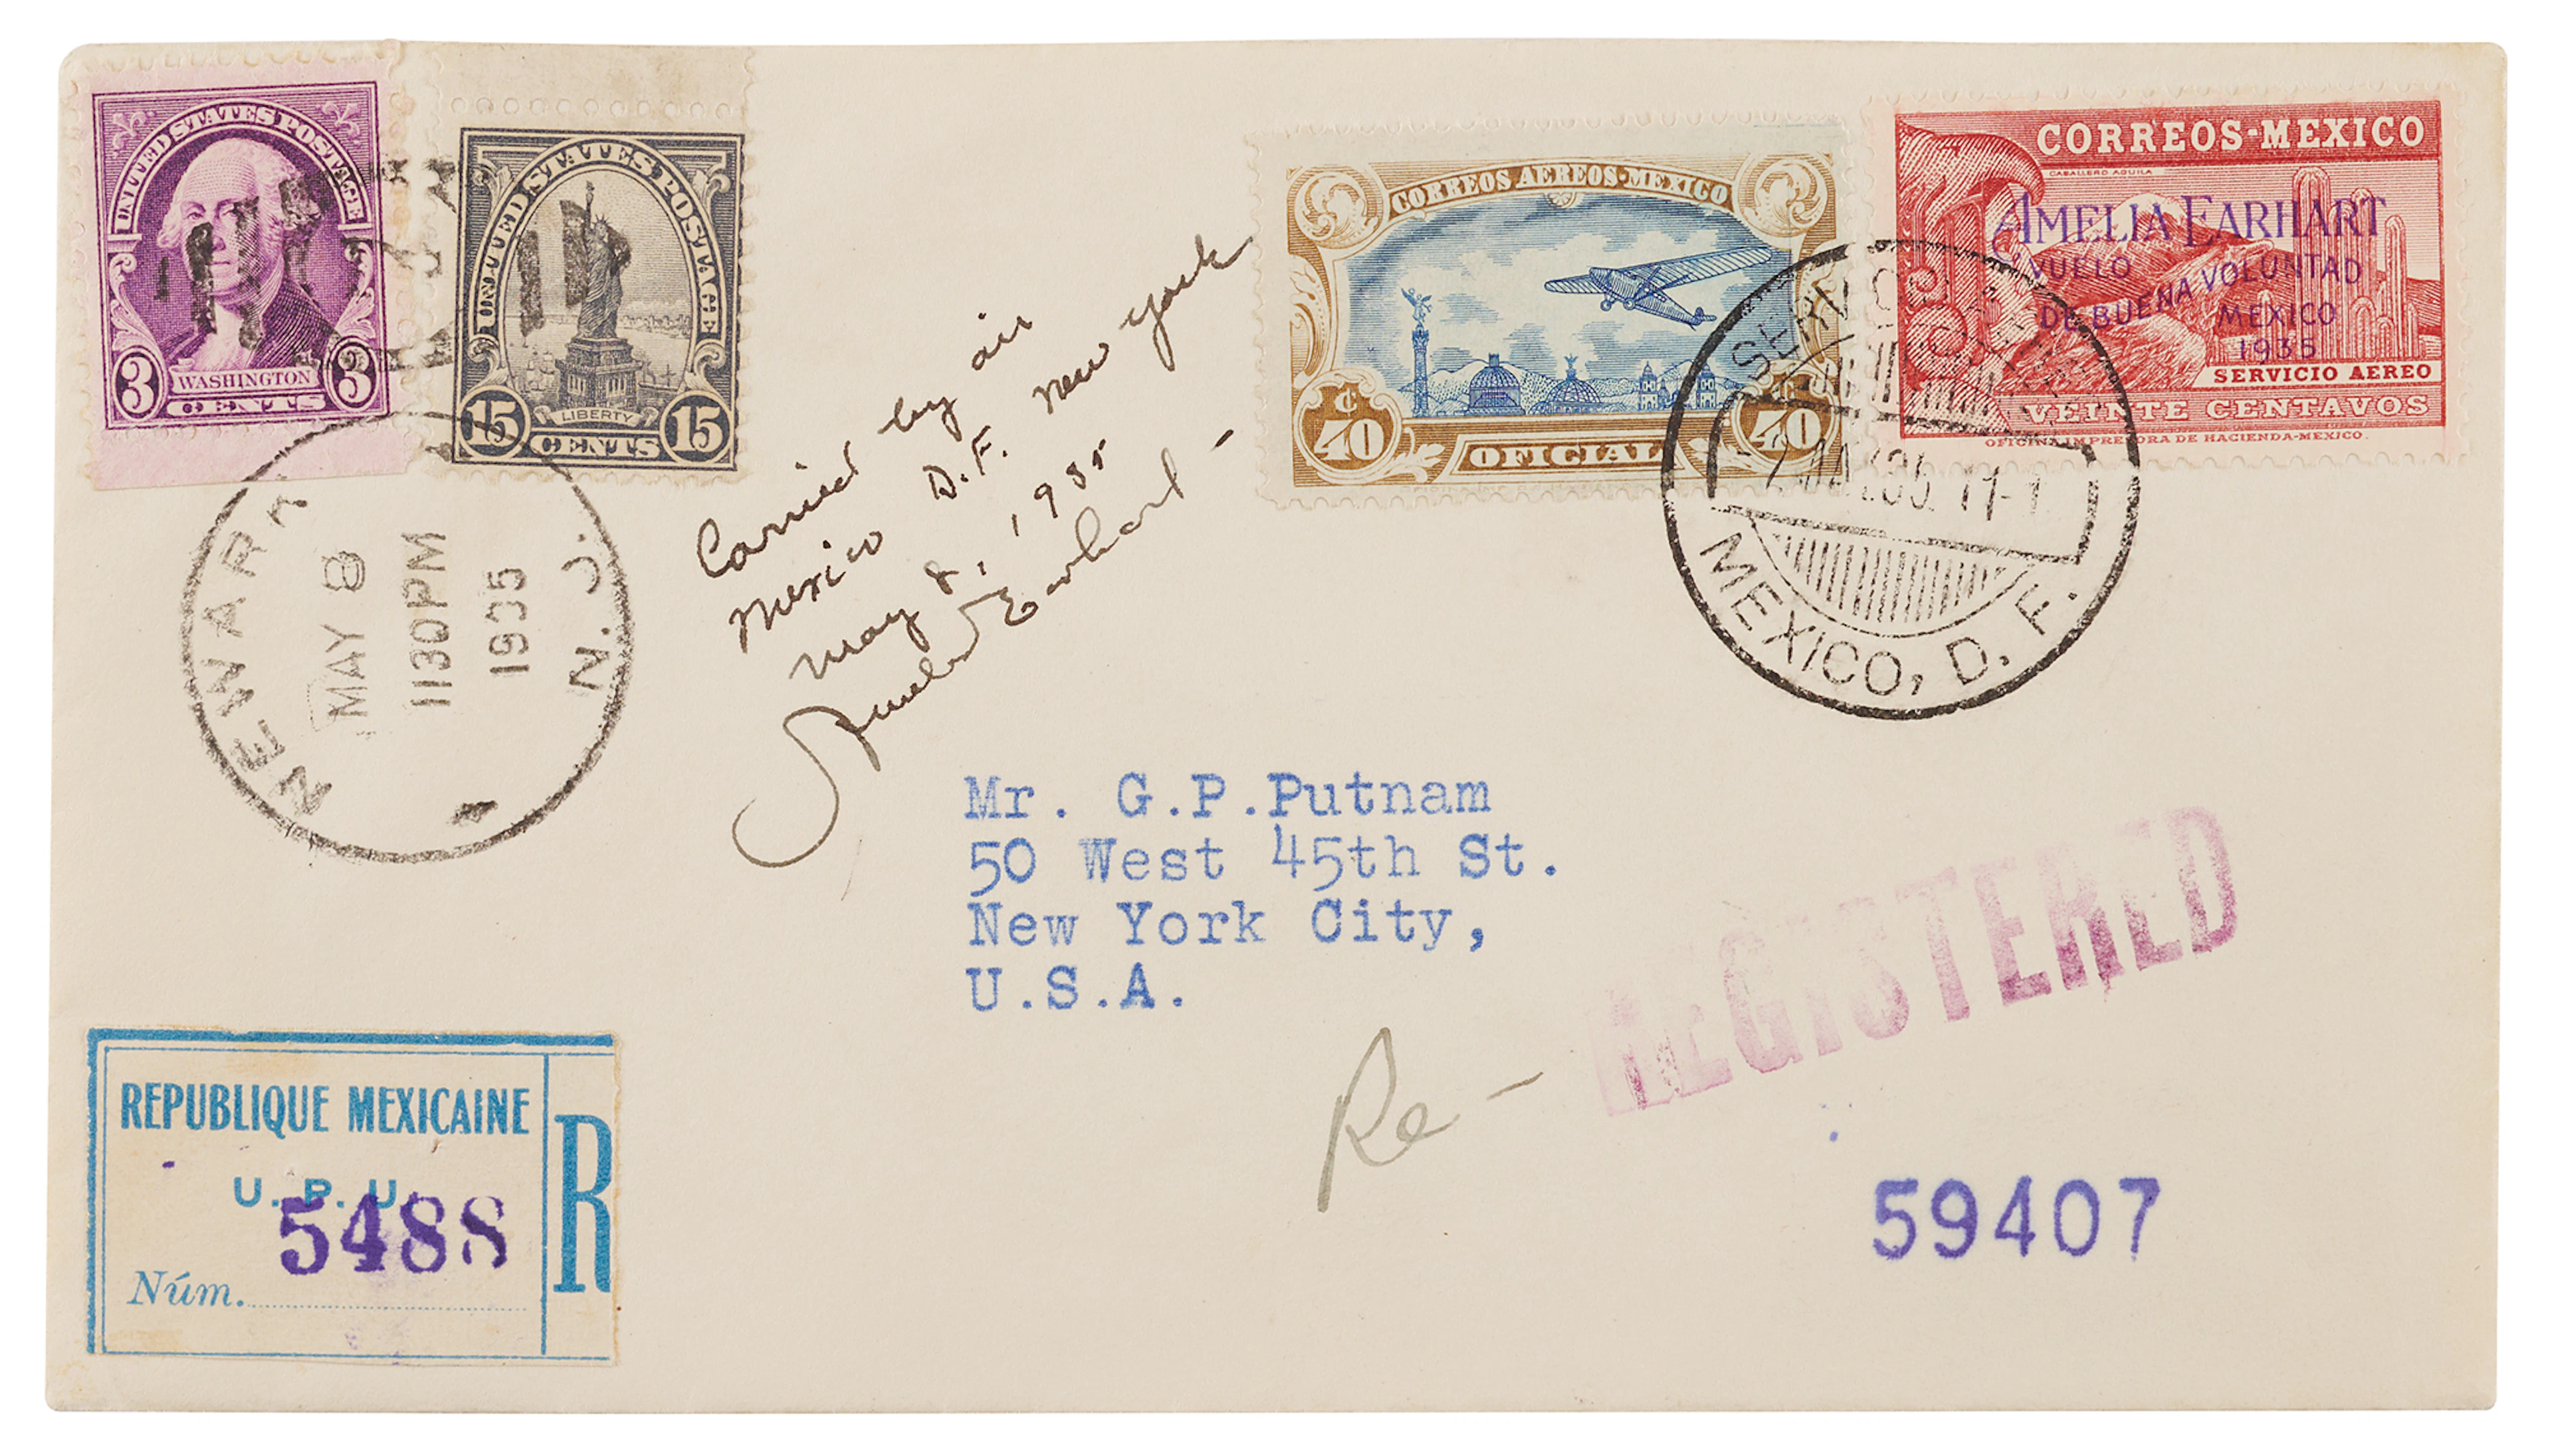 UNITED STATES POSTAGE
3 WASHINGTON 3
CENTS
UNITED STATES POSTAGE
LIBERTY
15 CENTS 15
NEWARK N. J.
MAY 8
1130PM
1935
Carried by air
Mexico D.F. New York
May 8, 1935
Amelia Earhart -
CORREOS AEREOS-MEXICO
¢ 40 OFICIAL ¢ 40
CORREOS-MEXICO
CABALLERO AGUILA
AMELIA EARHART
VUELO
DE BUENA VOLUNTAD
MEXICO
1935
SERVICIO AEREO
VEINTE CENTAVOS
OFICINA IMPRESORA DE HACIENDA-MEXICO.
MEXICO, D. F.
Mr. G.P.Putnam
50 West 45th St.
New York City,
U.S.A.
Re - REGISTERED
59407
REPUBLIQUE MEXICAINE
U. P. U.
R
Núm. 5488